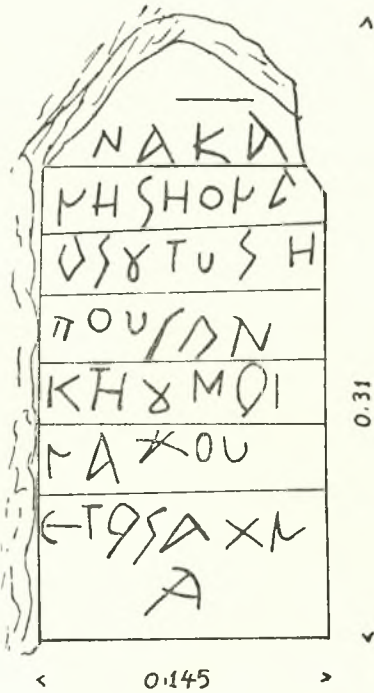 ΝΑΚΑ
ΝΗSΗΟΝΑ
ΟSȣΤUSΗ
ΠΟUSΑΝ
ΚΤΗȣΜΟΙ
ΝΑΧΟU
ЄΤΟSΑΧΝ
Α
0.31
0.145